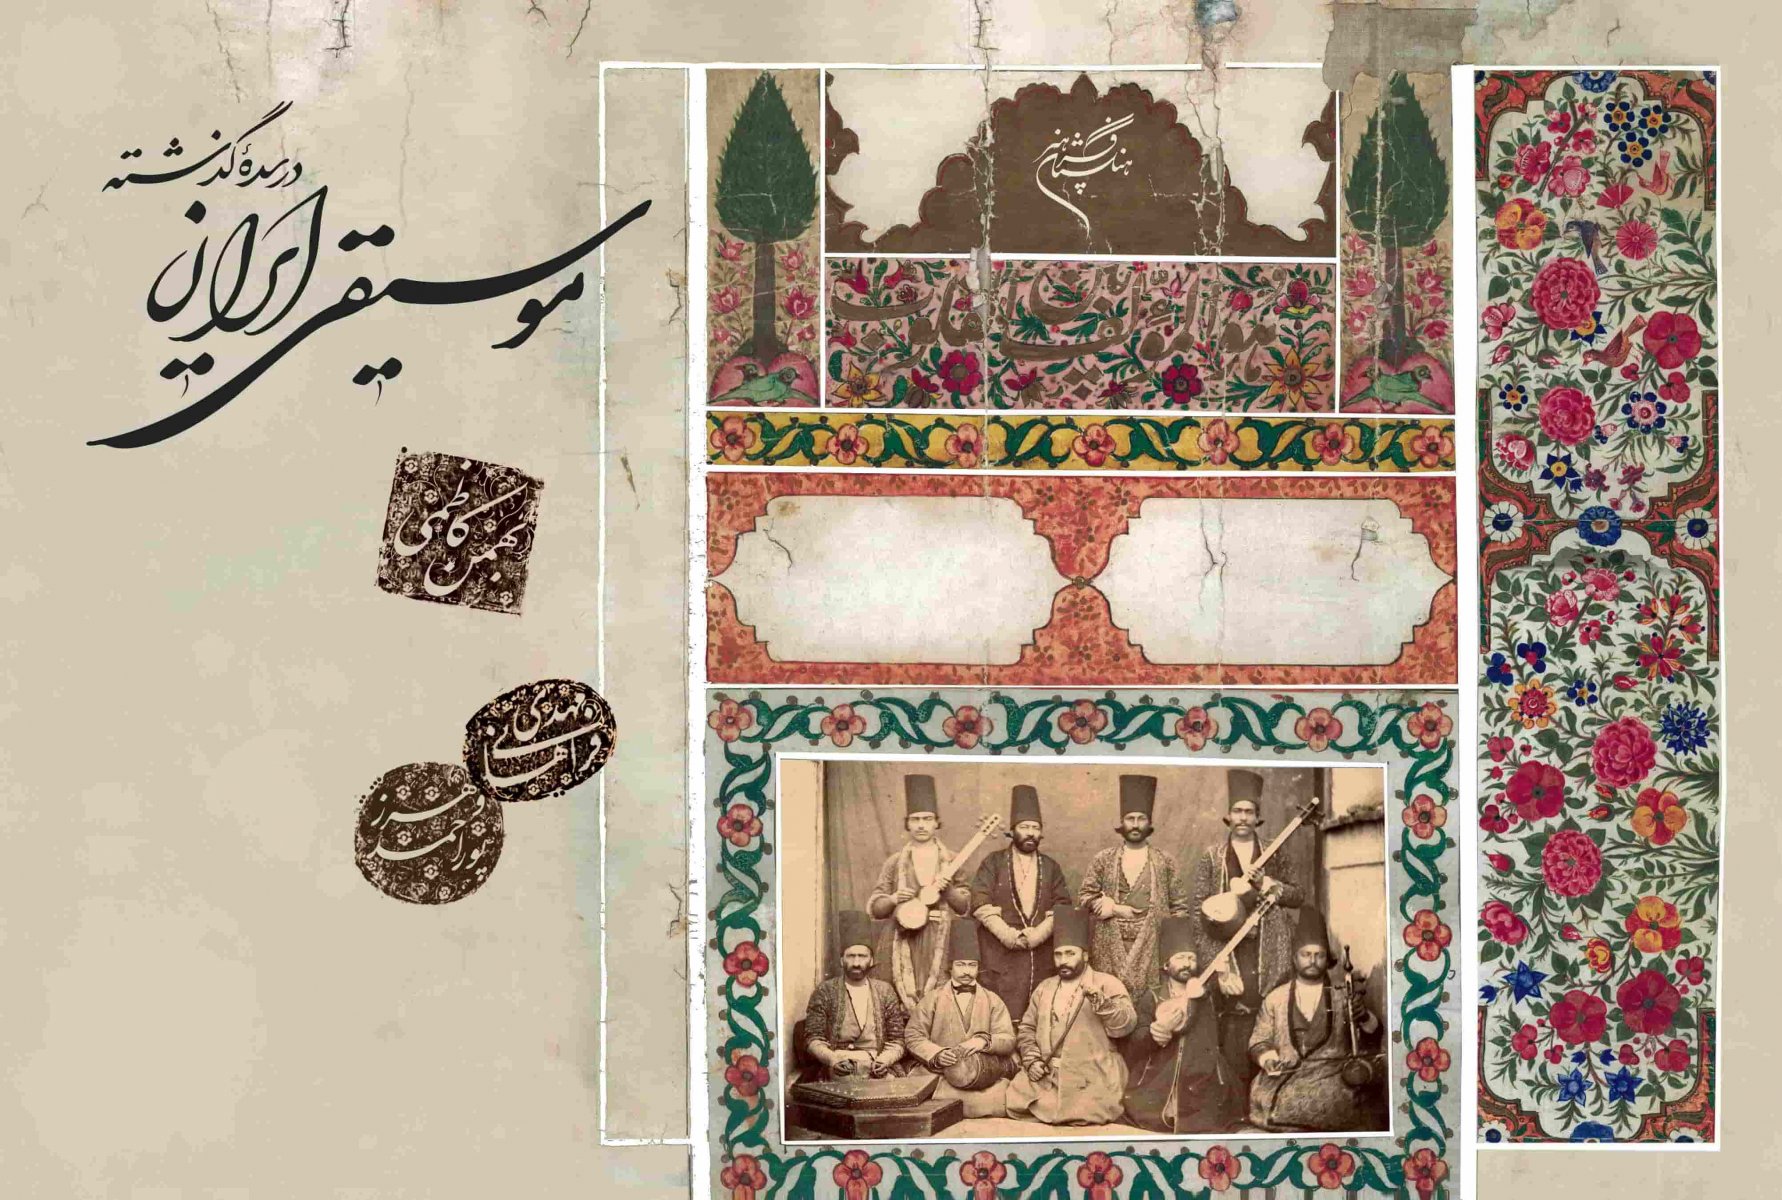 در سدهٔ گذشته
موسیقی ایران
بهمن کاظمی
مهدی فراهانی
وهرز پوراحمد
فرهنگستان هنر
هو المؤلف بین القلوب